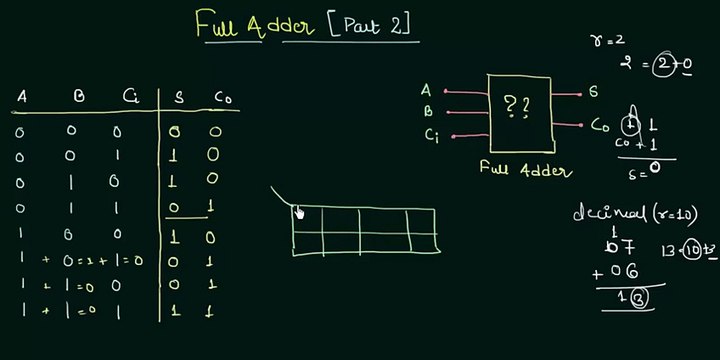 Full Adder [Part 2]
r=2
2 = 2+0
A B Ci S Co
0 0 0 0 0
0 0 1 1 0
0 1 0 1 0
0 1 1 0 1
1 0 0 1 0
1 + 0=1 + 1=0 0 1
1 + 1=0 0 0 1
1 + 1=0 1 1 1
A
B
Ci
??
S
Co
Full Adder
1 1
Co + 1
S=0
decimal (r=10)
1
07
+ 06
13